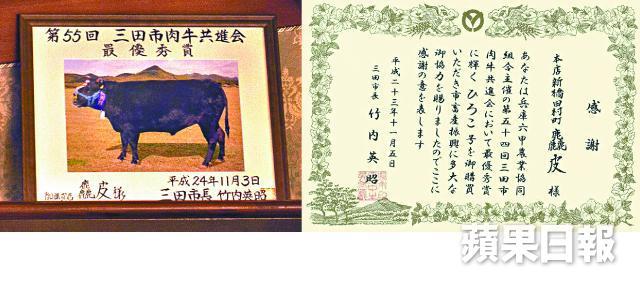 第55回 三田市肉牛共進会
最優秀賞
平成24年11月3日
三田市長 竹内英昭
皮 様
感謝
本店新橋田村町 皮 様
あなたは兵庫六甲農業協同
組合主催の第五十四回三田市
肉牛共進会において最優秀賞
に輝く ひろこ 号を御購買
いただき市畜産振興に多大な
御協力を賜りましたのでここに
感謝の意を表します
平成二十三年十一月五日
三田市長 竹内英昭
蘋果日報